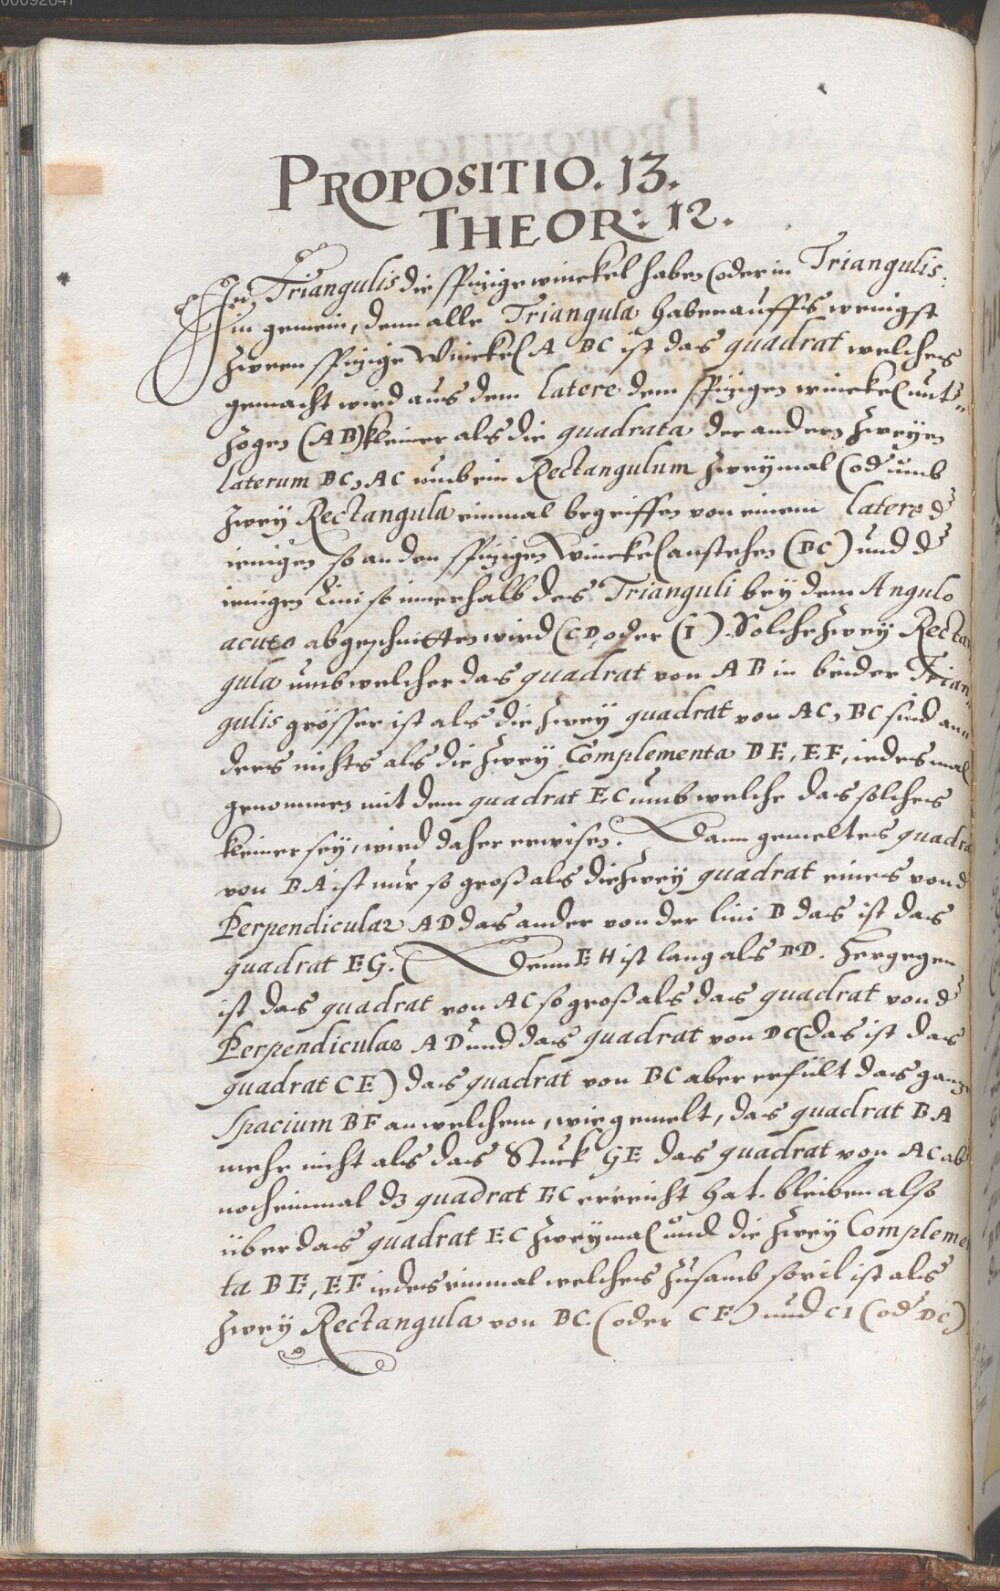 00092641
PROPOSITIO. 13.
THEOR: 12.
In Triangulis die spizige winckel haben (oder in Triangulis
in gemein, denn alle Triangula haben auffs wenigst
zween spizige Winckel A BC ist das quadrat welches
gemacht wird aus dem latere dem spizigen winckel unt=
zogen (AB) kleiner als die quadrata der andern zweyen
laterum BC, AC umb ein Rectangulum zweymal (od umb
zwey Rectangula einmal begriffen von einem latere d
ienigen so an den spizigen Winckel anstehen (BC) und d
ienigen Lini so innerhalb des Trianguli bey dem Angulo
acuto abgeschnitten wird (CD oder (I). Solche zwey Recta
gula umb welcher das quadrat von AB in beider Trian=
gulis grösser ist als die zwey quadrat von AC, BC sind an=
ders nichts als die zwey Complementa BE, EF, iedesmal
genommen mit dem quadrat EC umb welche das solches
kleiner sey, wird daher erwisen. Dann gemeltes quadra
von BA ist nur so groß als die zwey quadrat eines von d
Perpendicular AD das ander von der lini D das ist das
quadrat EG. (Denn EH ist lang als BD. Hergegen
ist das quadrat von AC so groß als das quadrat von d
Perpendicular AD und das quadrat von DC (das ist das
quadrat CE) das quadrat von BC aber erfült das ganz
spacium BF an welchem, wie gemelt, das quadrat BA
mehr nicht als das Stuck GE das quadrat von AC ab
noch einmal dz quadrat EC erreicht hat. bleiben also
über das quadrat EC zweymal und die zwey Complemen
ta BE, EF iedes einmal welches zusamb sovil ist als
zwey Rectangula von BC (oder CF) und CI (od DC)